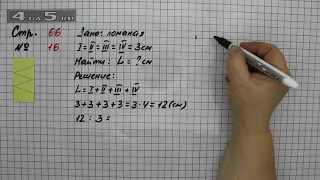 4на5.ru
Стр. 66 Дано: ломаная
№ 16 I = II = III = IV = 3см
Найти: L = ? см
Решение:
L = I + II + III + IV
3 + 3 + 3 + 3 = 3 · 4 = 12 (см)
12 : 3 =